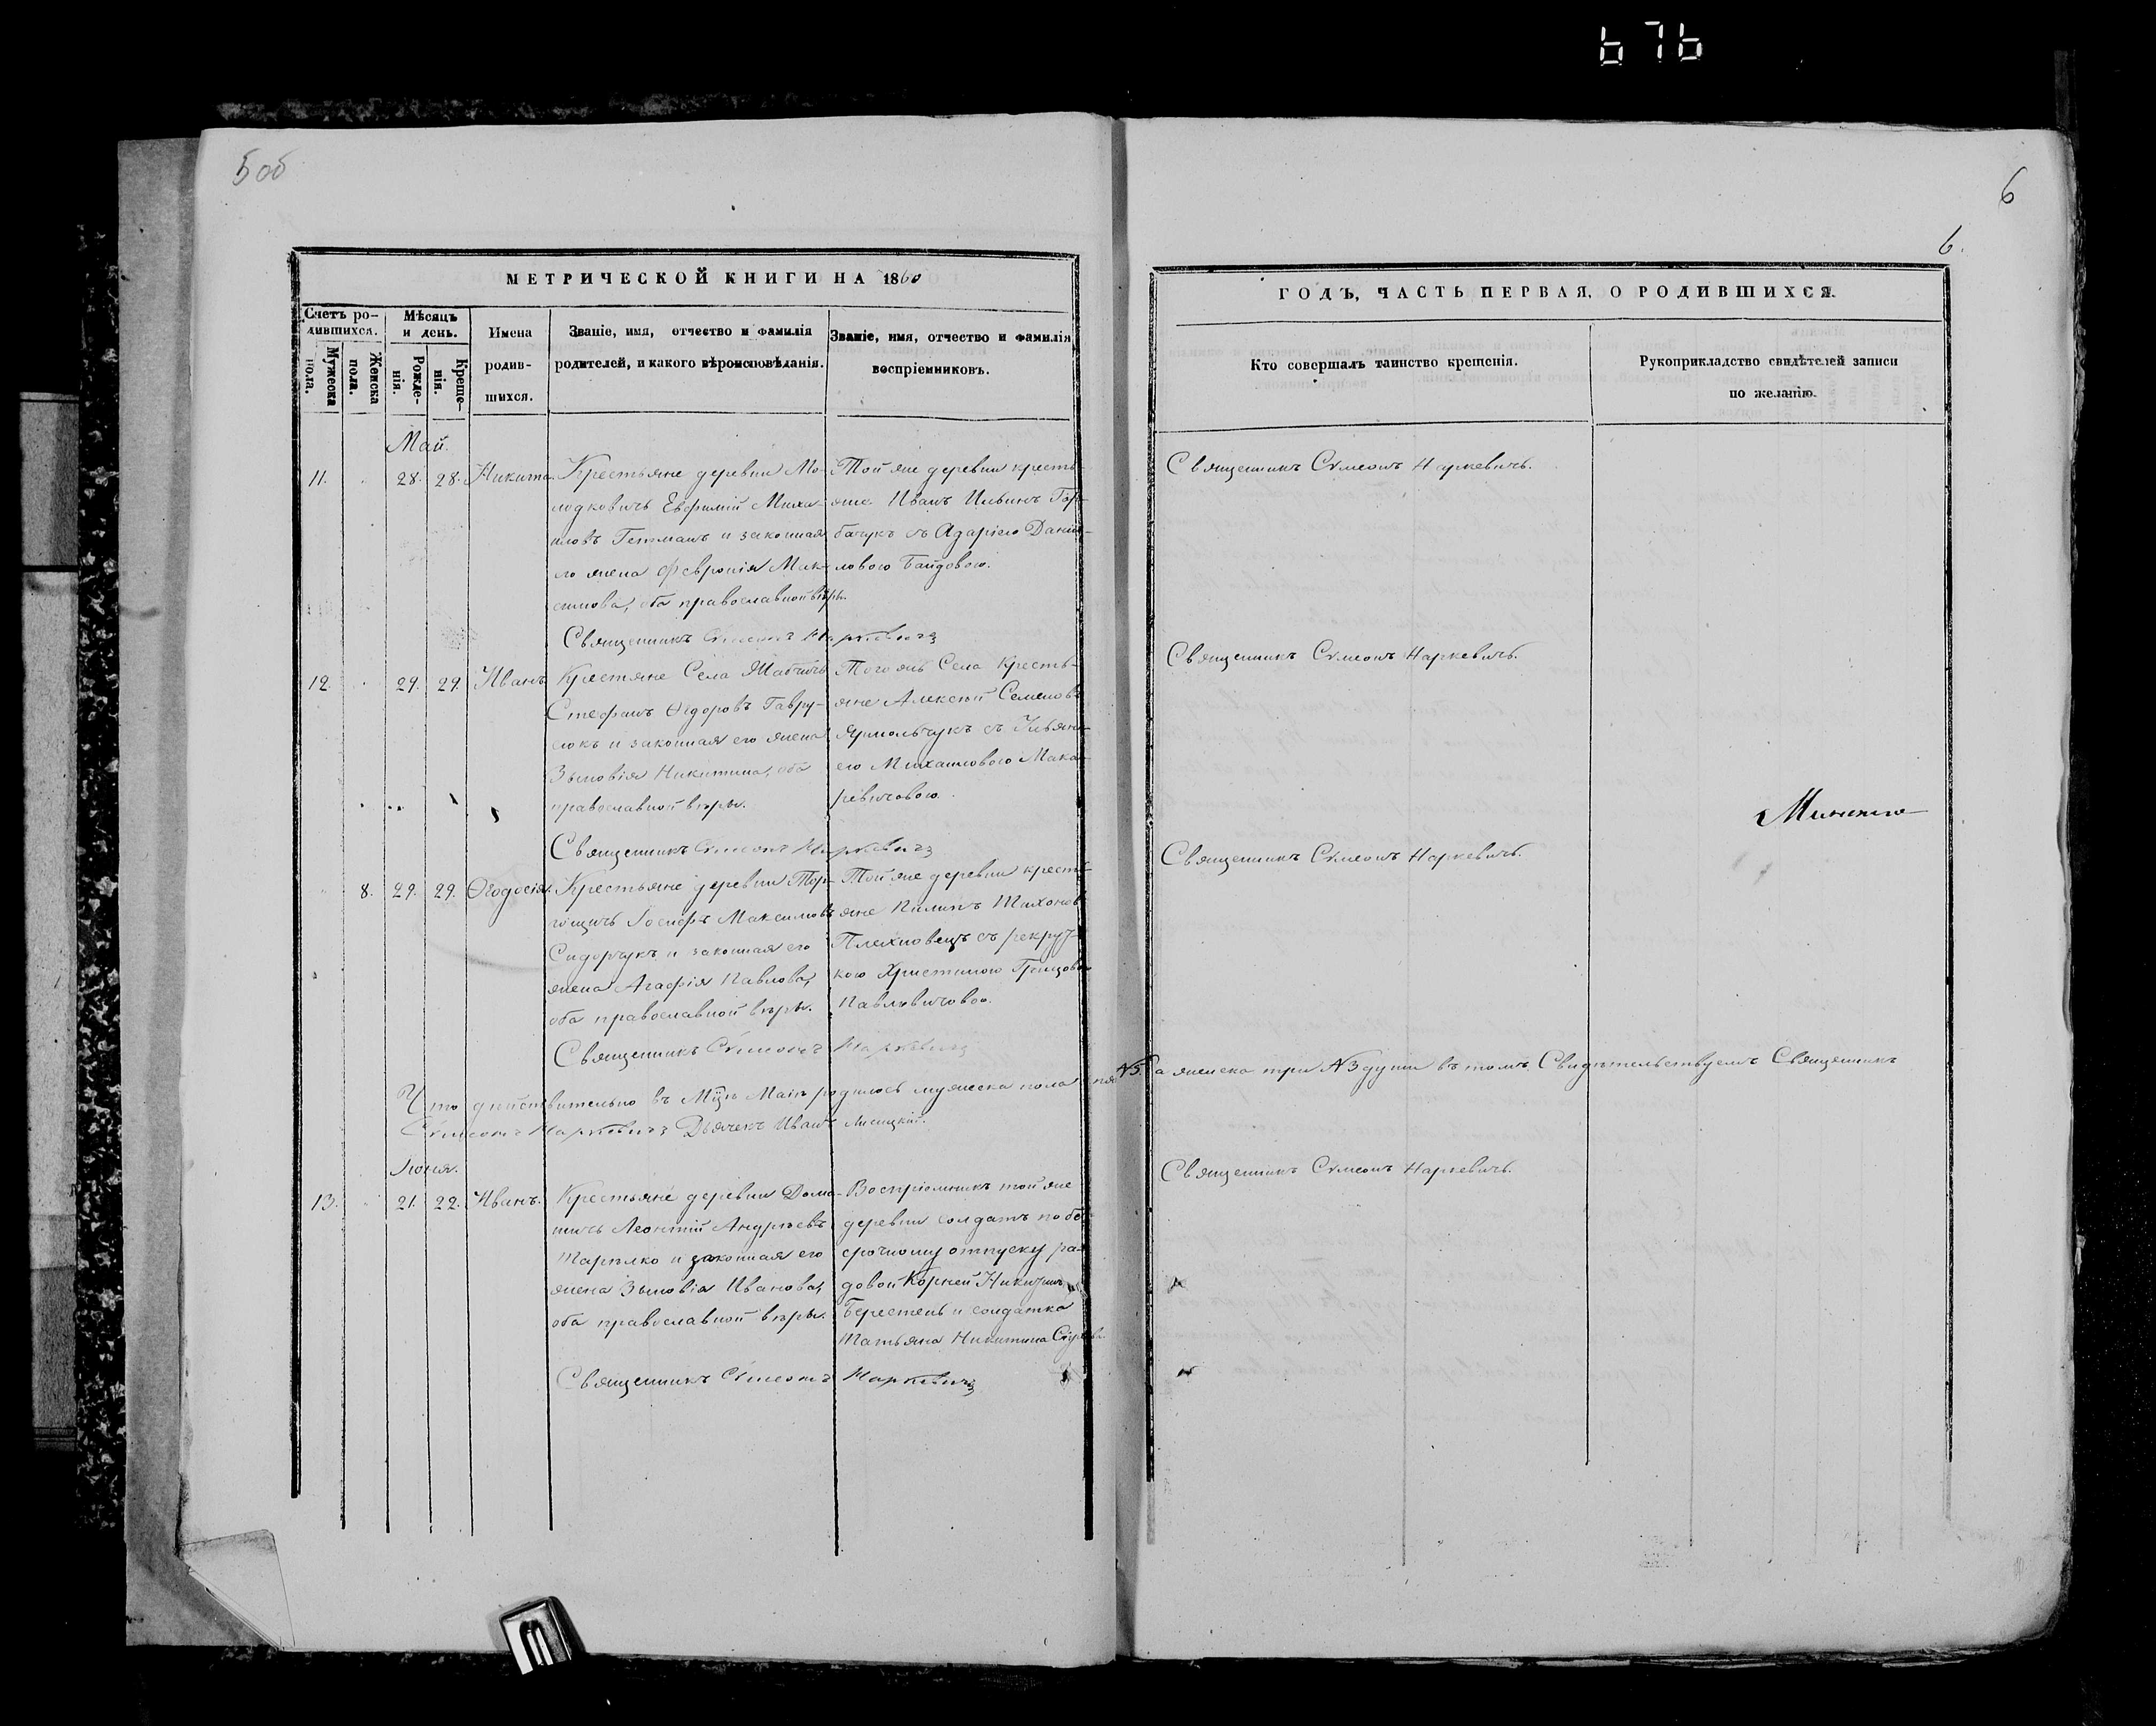 676
5 об
6
6.
МЕТРИЧЕСКОЙ КНИГИ НА 1860
ГОДЪ, ЧАСТЬ ПЕРВАЯ, О РОДИВШИХСЯ.
Счетъ ро-
дившихся.
Мужеска
пола.
Женска
пола.
Мѣсяцъ
и день.
Рожде-
нія.
Креще-
нія.
Имена
родив-
шихся.
Званіе, имя, отчество и фамилія
родителей, и какого вѣроисповѣданія.
Званіе, имя, отчество и фамилія
воспріемниковъ.
Кто совершалъ таинство крещенія.
Рукоприкладство свидѣтелей записи
по желанію.
Май.
11. 28. 28. Никита.
Крестьяне деревни Мо-
лодковичъ Евфимій Миха-
иловъ Гетманъ и законная
его жена Февронія Мак-
симова, оба православной вѣры.
Той же деревни кресть-
яне Иванъ Ильинъ Гор-
бачукъ съ Адаріею Данил-
ловою Байдовою.
Священникъ Сѵмеонъ Наркевичъ.
Священникъ Сѵмеонъ Наркевичъ
12. 29. 29. Иванъ.
Крестяне Села
Стефанъ Ѳедоровъ Гавру-
сюкъ и законная его жена
Зѣновія Никитина, оба
православной вѣры.
Того жъ Села Кресть-
яне Алексѣй Семеновъ
Ярмольчукъ съ Ульян-
ею Михаиловою Мака-
ревичовою.
Священникъ Сѵмеонъ Наркевичъ.
Священникъ Сѵмеонъ Наркевичъ
8. 29. 29. Ѳеодосія.
Крестьяне деревни Тор-
гощичъ Іосифъ Максимовъ
Сидорчукъ и законная его
жена Агафія Павлова,
оба православной вѣры.
Той же деревни кресть-
яне Пилипъ Тихоновъ
Плехновецъ съ рекрут-
кою Христиною Грицовою
Павлювичовою.
Священникъ Сѵмеонъ Наркевичъ.
Священникъ Сѵмеонъ Наркевичъ
Что дѣйствительно въ Мцѣ Маіи родилось мужеска пола пя №5. а женска три №3 души въ томъ Свидѣтельствуемъ Священникъ
Сѵмеонъ Наркевичъ Дьячекъ Иванъ Лисицкій.
Іюня.
13. 21. 22. Иванъ.
Крестьяне деревни Дома-
шичъ Леонтій Андреевъ
Тарилко и законная его
жена Зѣновія Иванова,
оба православной вѣры.
Воспріемникъ той же
деревни солдатъ по бе
срочному отпуску ря-
довой Корней Никитинъ
Берестень и солдатка
Татьяна Никитина
Священникъ Сѵмеонъ Наркевичъ.
Священникъ Сѵмеонъ Наркевичъ